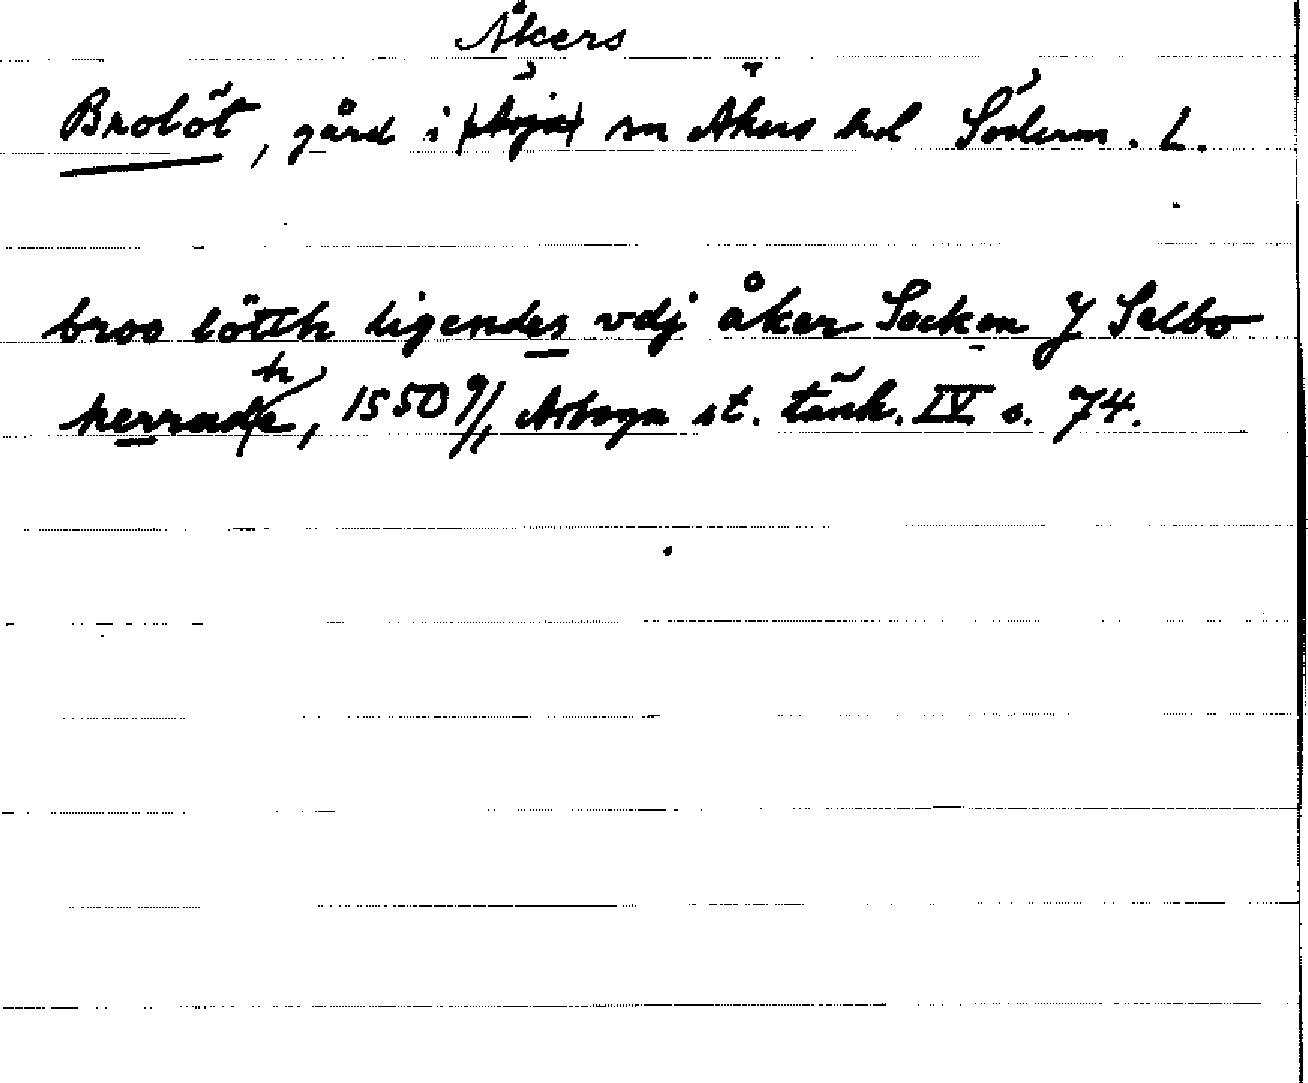 Åkers
Brolöt, gård i sn Åkers hrd Söderm. L.
broo lötth ligendes vdj åker Socken J Selbo
herrade, 1550 9/11 Arboga st. tänk. IV s. 74.